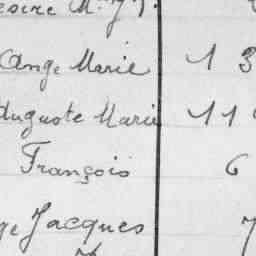 Ange Marie 1 3
Auguste Marie 11
François 6
Jacques 7